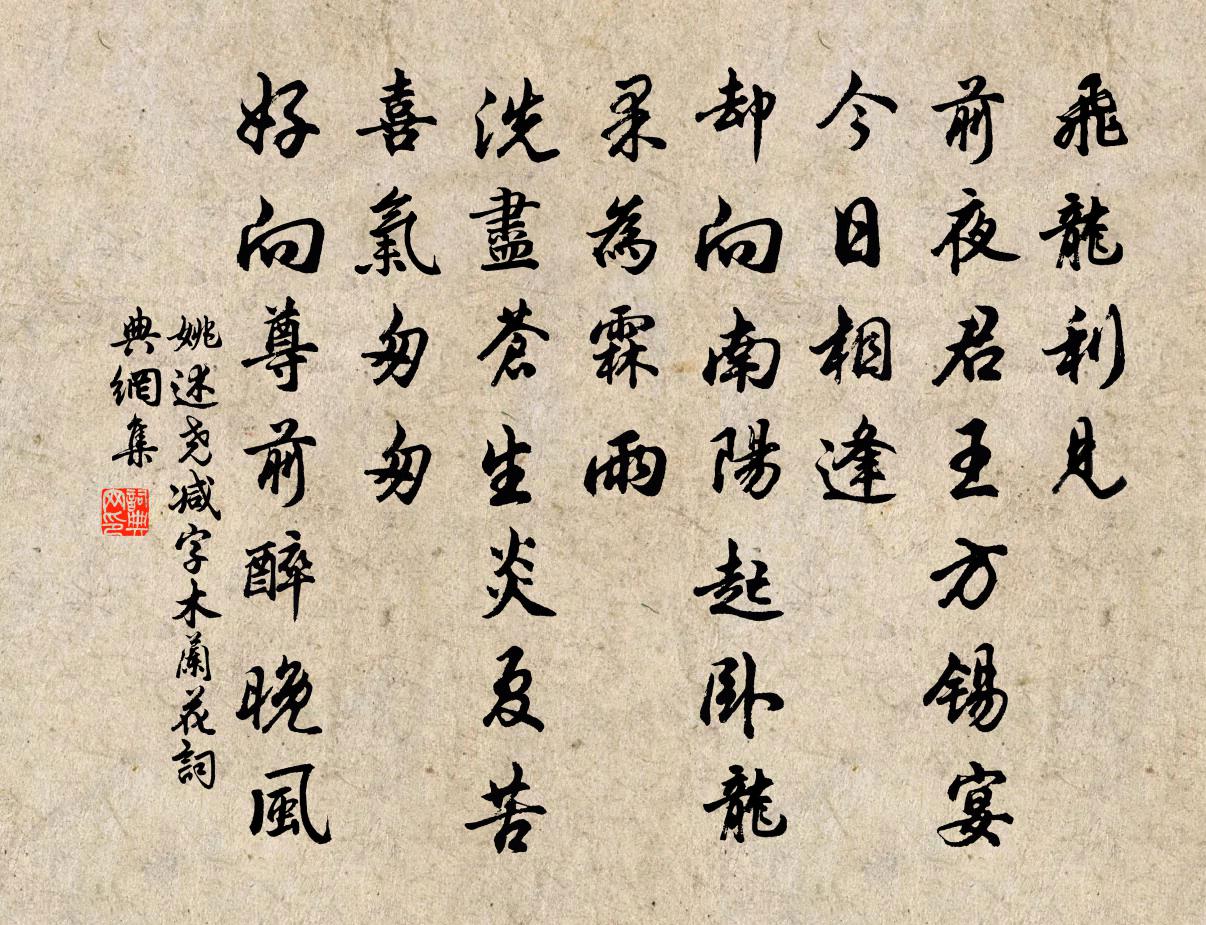 飛龍利見
前夜君王方錫宴
今日相逢
却向南陽起卧龍
果為霖雨
洗盡蒼生炎夏苦
喜氣匆匆
好向尊前醉晚風
姚述堯减字木蘭花詞
典網集
詞典
网印